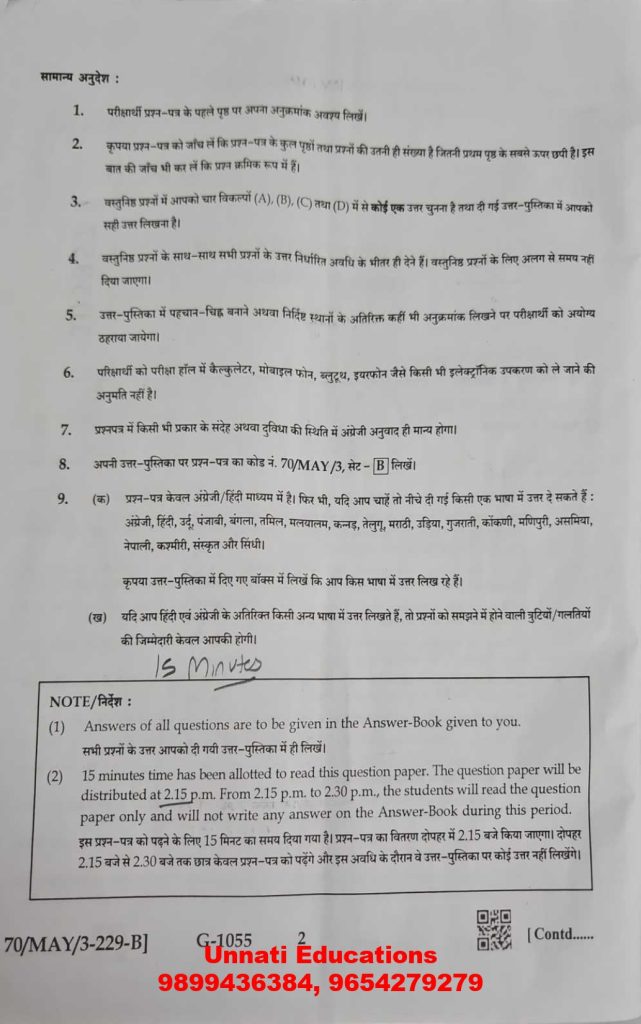 सामान्य अनुदेश :
1. परीक्षार्थी प्रश्न-पत्र के पहले पृष्ठ पर अपना अनुक्रमांक अवश्य लिखें।
2. कृपया प्रश्न-पत्र को जाँच लें कि प्रश्न-पत्र के कुल पृष्ठों तथा प्रश्नों की उतनी ही संख्या है जितनी प्रथम पृष्ठ के सबसे ऊपर छपी है। इस
बात की जाँच भी कर लें कि प्रश्न क्रमिक रूप में हैं।
3. वस्तुनिष्ठ प्रश्नों में आपको चार विकल्पों (A), (B), (C) तथा (D) में से कोई एक उत्तर चुनना है तथा दी गई उत्तर-पुस्तिका में आपको
सही उत्तर लिखना है।
4. वस्तुनिष्ठ प्रश्नों के साथ-साथ सभी प्रश्नों के उत्तर निर्धारित अवधि के भीतर ही देने हैं। वस्तुनिष्ठ प्रश्नों के लिए अलग से समय नहीं
दिया जाएगा।
5. उत्तर-पुस्तिका में पहचान-चिह्न बनाने अथवा निर्दिष्ट स्थानों के अतिरिक्त कहीं भी अनुक्रमांक लिखने पर परीक्षार्थी को अयोग्य
ठहराया जायेगा।
6. परिक्षार्थी को परीक्षा हॉल में कैल्कुलेटर, मोबाइल फोन, ब्लुटूथ, इयरफोन जैसे किसी भी इलेक्ट्रॉनिक उपकरण को ले जाने की
अनुमति नहीं है।
7. प्रश्नपत्र में किसी भी प्रकार के संदेह अथवा दुविधा की स्थिति में अंग्रेजी अनुवाद ही मान्य होगा।
8. अपनी उत्तर-पुस्तिका पर प्रश्न-पत्र का कोड नं. 70/MAY/3, सेट - B लिखें।
9. (क) प्रश्न-पत्र केवल अंग्रेजी/हिंदी माध्यम में है। फिर भी, यदि आप चाहें तो नीचे दी गई किसी एक भाषा में उत्तर दे सकते हैं :
अंग्रेजी, हिंदी, उर्दू, पंजाबी, बंगला, तमिल, मलयालम, कन्नड़, तेलुगू, मराठी, उड़िया, गुजराती, कोंकणी, मणिपुरी, असमिया,
नेपाली, कश्मीरी, संस्कृत और सिंधी।
कृपया उत्तर-पुस्तिका में दिए गए बॉक्स में लिखें कि आप किस भाषा में उत्तर लिख रहे हैं।
(ख) यदि आप हिंदी एवं अंग्रेजी के अतिरिक्त किसी अन्य भाषा में उत्तर लिखते हैं, तो प्रश्नों को समझने में होने वाली त्रुटियों/गलतियों
की जिम्मेदारी केवल आपकी होगी।
15 Minutes
NOTE/निर्देश :
(1) Answers of all questions are to be given in the Answer-Book given to you.
सभी प्रश्नों के उत्तर आपको दी गयी उत्तर-पुस्तिका में ही लिखें।
(2) 15 minutes time has been allotted to read this question paper. The question paper will be
distributed at 2.15 p.m. From 2.15 p.m. to 2.30 p.m., the students will read the question
paper only and will not write any answer on the Answer-Book during this period.
इस प्रश्न-पत्र को पढ़ने के लिए 15 मिनट का समय दिया गया है। प्रश्न-पत्र का वितरण दोपहर में 2.15 बजे किया जाएगा। दोपहर
2.15 बजे से 2.30 बजे तक छात्र केवल प्रश्न-पत्र को पढ़ेंगे और इस अवधि के दौरान वे उत्तर-पुस्तिका पर कोई उत्तर नहीं लिखेंगे।
70/MAY/3-229-B] G-1055 2 [ Contd......
Unnati Educations
9899436384, 9654279279